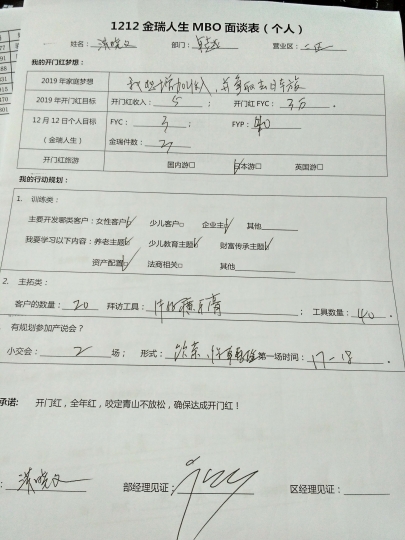 1212 金瑞人生 MBO 面谈表（个人）
姓名： 部门： 营业区：二区
我的开门红梦想：
2019 年家庭梦想 我想增加收入，并争取去日本旅
2019 年开门红目标 开门红收入：5 ； 开门红 FYC：3万 。
12 月 12 日个人目标 FYC：3 ； FYP：
（金瑞人生） 金瑞件数：2
开门红旅游 国内游□ 日本游☑ 英国游□
我的行动规划：
1. 训练类：
主要开发哪类客户：女性客户☑ 少儿客户□ 企业主☑ 其他
我要学习以下内容：养老主题☑ 少儿教育主题☑ 财富传承主题☑
资产配置☑ 法商相关□ 其他
2. 主拓类：
客户的数量：20 拜访工具： ； 工具数量：40 。
有规划参加产说会？
小交会：2 场； 形式： 第一场时间：17-18 。
承诺： 开门红，全年红，咬定青山不放松，确保达成开门红！
： 部经理见证： 区经理见证：